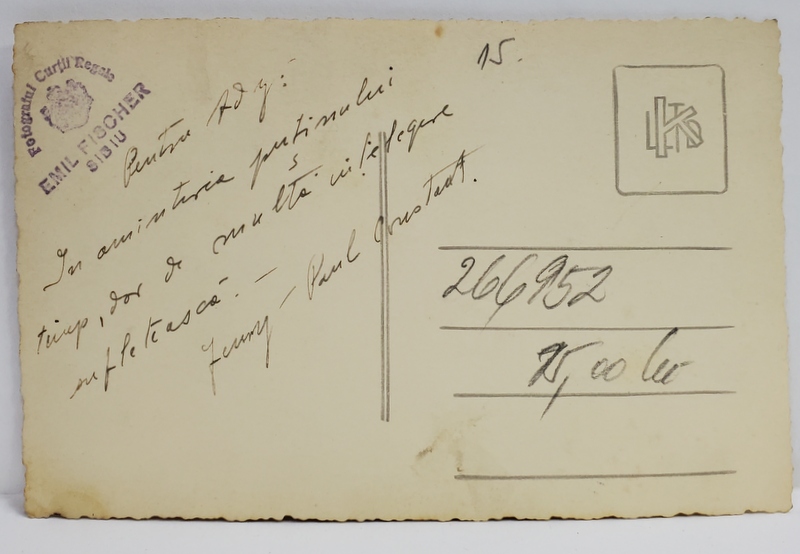 Fotograful Curții Regale
EMIL FISCHER
SIBIU
15.
Pentru Ady:
In amintirea puținului
timp, dor de multă înțelegere
sufletească. –
Jenny – Paul Constant.
LKTS
266952
15,00 lei